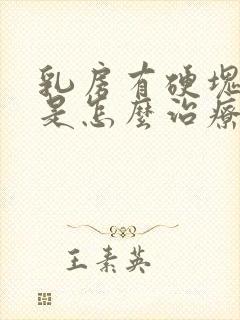 乳房有硬塊
是怎麼治療
王素英